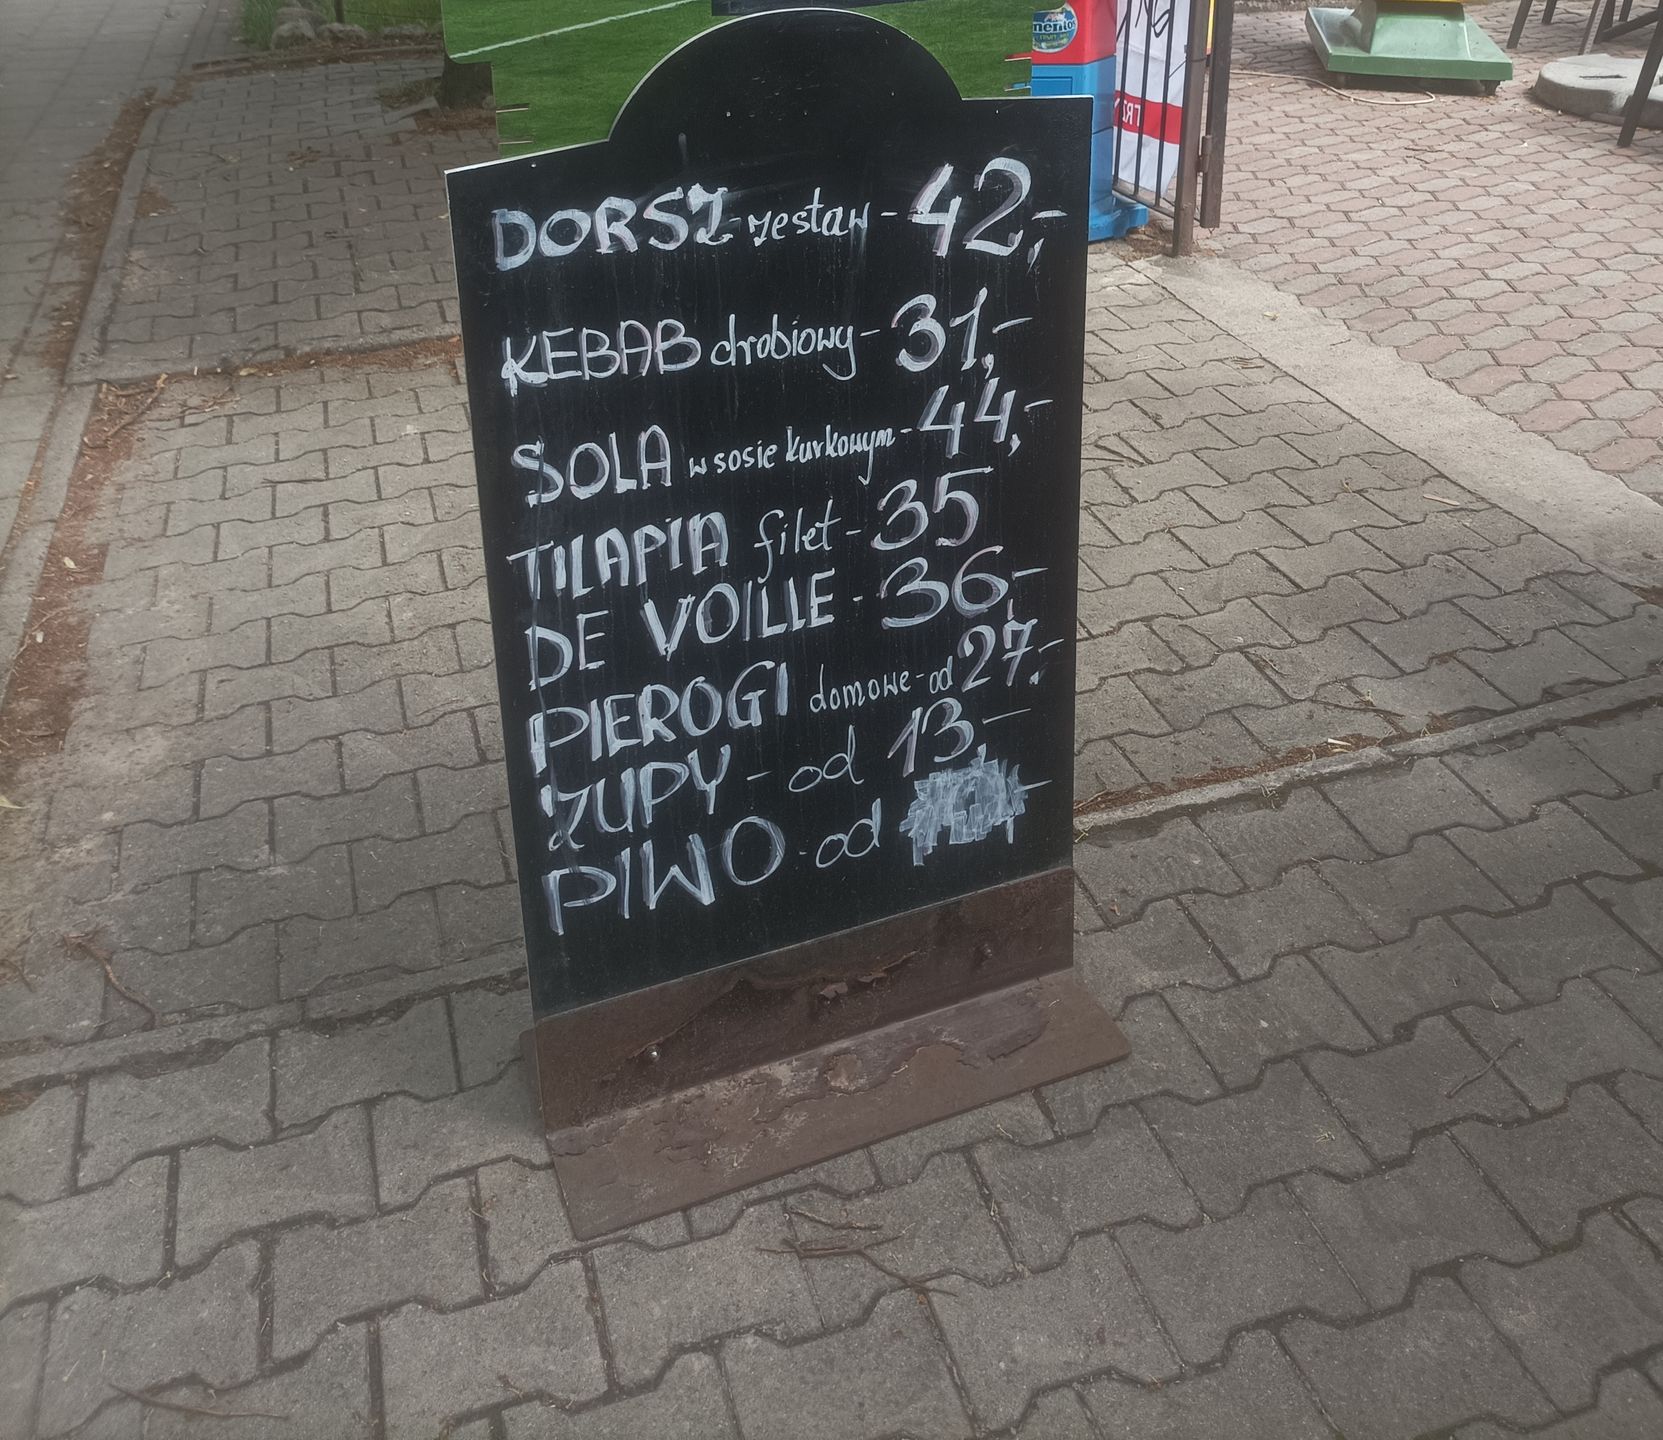 mentos
DORSZ - zestaw - 42,-
KEBAB drobiowy - 31,-
SOLA w sosie kurkowym - 44,-
TILAPIA filet - 35
DE VOILLE - 36,-
PIEROGI domowe - od 27,-
ZUPY - od 13,-
PIWO - od